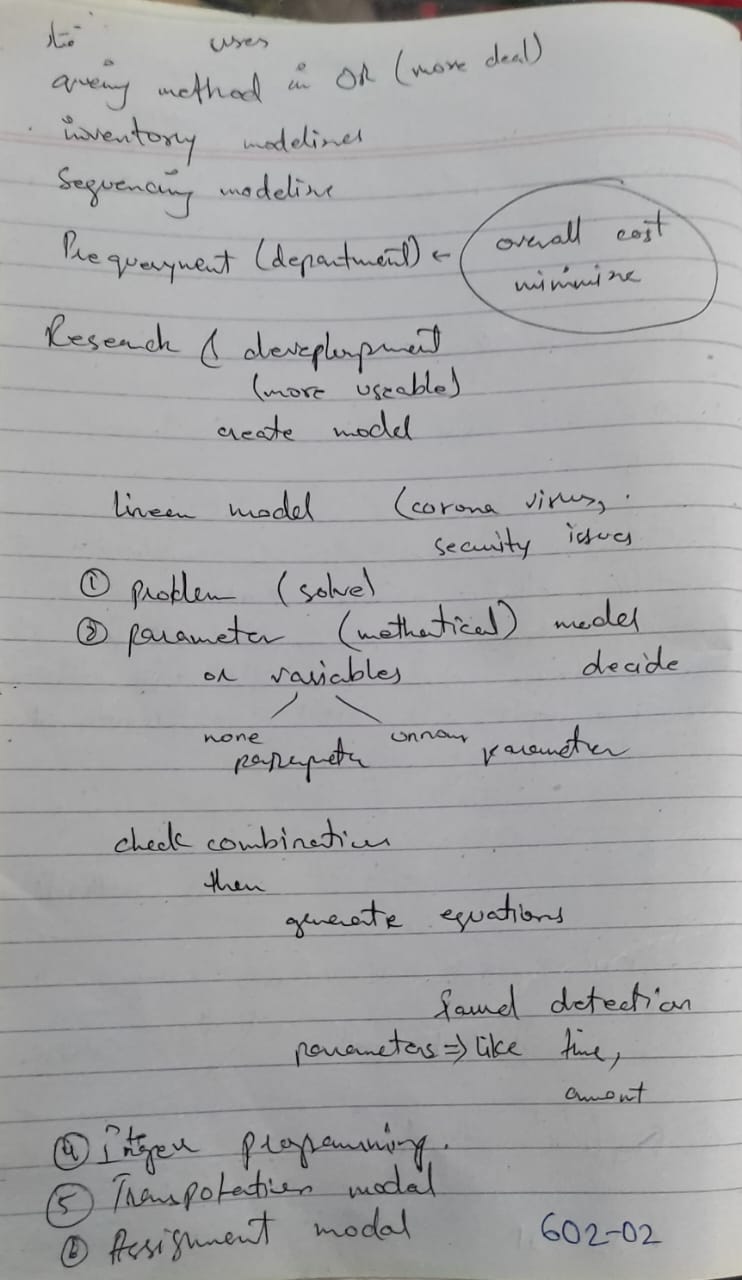 uses
queing method in OR (more deal)
inventory modelines
Sequencing modeline
(department) ← overall cost
minimize
Research & development
(more useable)
create model
linear model (corona virus,
security issues
① problem (solve)
② parameter (methatical) model
or variables decide
none
parameter parameter
check combination
then
generate equations
fraud detection
parameters ⇒ like time,
amont
④ Integer programming.
⑤ Transpotation modal
⑥ Assignment modal 602-02